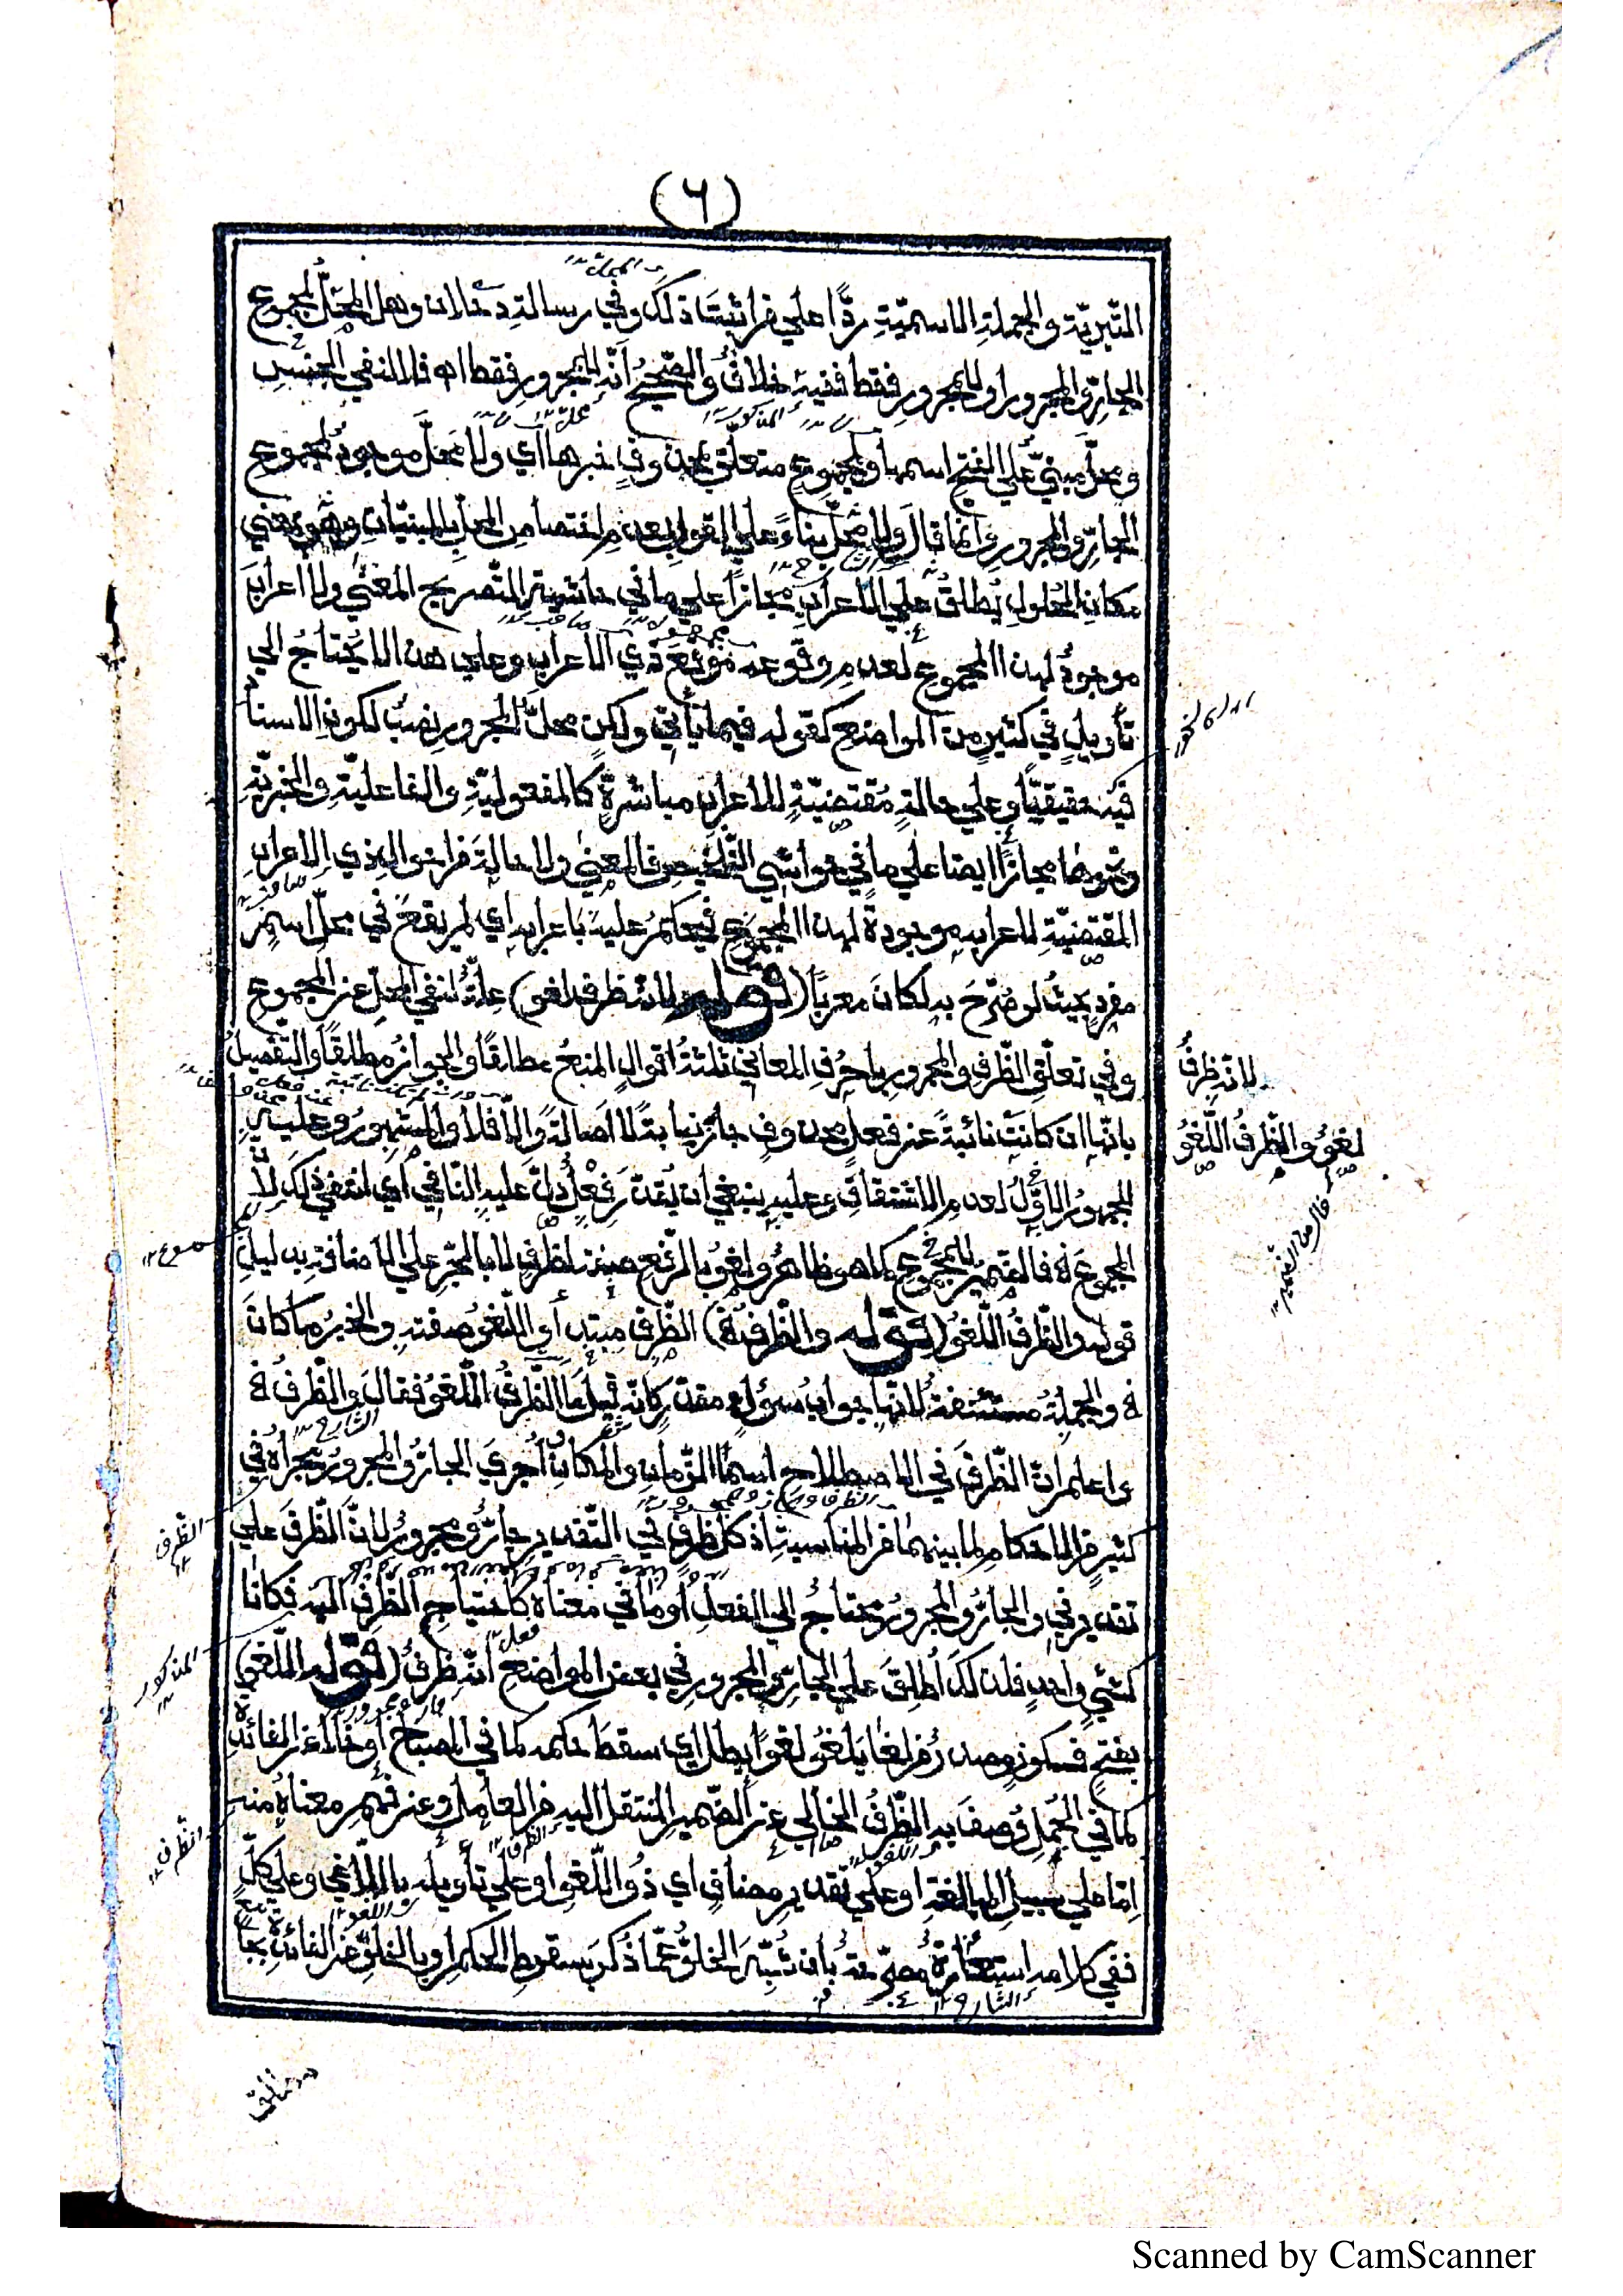 (٦)
الخبريّة والجملةِ الاسميّةِ ردًّا علي من اثبتَ ذلك وفي رسالة دحلان وهل المحلُّ لمجموع
الجارِّ والمجرور او للمجرورِ فقط ففيه خلافٌ والصّحيحُ انّه للمجرورِ فقط اه فلا لنفي الجنسِ
ومحلَّ مبنيٌّ علي الفتحِ اسمها ولمجموعِ متعلّقٌ بمحذوفٍ خبرها اي ولا محلَّ موجودٌ لمجموعِ
الجارِّ والمجرورِ وانّما قال ولا محلَّ بناءً علي القول بعدمِ اختصاصِ المحلِّ بالمبنيّاتِ وهو بمعني
مكانِ الحلولِ يُطلقُ علي الاعرابِ مجازًا علي ما في حاشية التّصريح فالمعني ولا اعرابَ
موجودٌ لهذا المجموعِ لعدمِ وقوعه موقعَ ذي الاعرابِ وعلي هذا لا يُحتاجُ الي
تأويلٍ في كثيرٍ من المواضع كقوله فيما يأتي ولكن محلُّ المجرور نصبٌ لكونِ الاسنادِ
فيه حقيقيًّا وعلي حالةٍ مُقتضيةٍ للاعرابِ مباشرةً كالمفعوليّةِ والفاعليّةِ والخبريّةِ
ونحوها مجازًا ايضا علي ما في حواشي التلخيص فالمعني ولا حالةَ من احوال ذي الاعرابِ
المقتضيّةِ لاعرابه موجودةٌ لهذا المجموعِ فيحكمُ عليه باعرابه اي لم يقعْ في محلّ اسمٍ
مفردٍ بحيثُ لو صُرّحَ به لكانَ معربًا (قوله لانّه ظرف لغو) علّةٌ لنفي المحلِّ عن المجموعِ
وفي تعلّقِ الظّرفِ والمجرورِ باحرُفِ المعاني ثلثةُ اقوالٍ المنعُ مطلقًا والجوازُ مطلقًا والتّفصيلُ
بانّها ان كانت نائبةً عن فعلٍ محذوفٍ جاز نيابةً لا أصالةً والّا فلا والمشهورُ وعليه
الجمهورُ الاوّلُ لعدمِ الاشتقاقِ وعليه ينبغي ان يُقدّرَ فعلٌ دلَّ عليه النّافي أي انتفي ذلك لانّ
المجموعَ اه فالضميرُ للمجموعِ كما هو ظاهرٌ ولغوٌ بالرّفعِ صفةُ لظرفٍ لا بالجرِّ علي الاضافة بدليلِ
قوله والظّرفُ اللّغوُ (قوله والظّرف اه) الظّرفُ مبتدأ واللّغوُ صفته والخبرُ ما كانَ
اه والجملةُ مستئنفةٌ لانّها جوابُ سؤالٍ مقدّرٍ كانّه قيلَ ما الظّرفُ اللّغوُ فقالَ والظّرفُ اه
واعلم انّ الظّرفَ في الاصطلاح اسمُ الزّمانِ والمكانِ أُجريَ الجارُّ والمجرورُ مجراهُ في
كثيرٍ من الاحكامِ لما بينهما من المناسبةِ اذ كلُّ ظرفٍ في التّقدير جارٌّ ومجرورٌ لانَّ الظّرفَ علي
تقدير في والجارُّ والمجرورُ محتاجٌ الي الفعلِ أو ما في معناهُ كاحتياجِ الظّرفِ اليه فكانا
كشيءٍ واحدٍ فلذلكَ أُطلِقَ علي الجارِّ والمجرورِ في بعض المواضع انّه ظرفٌ (قوله اللّغو)
بفتحٍ فسكونٍ مصدرٌ من لغا يلغو لغوًا بطل اي سقطَ حكمه كما في المصباح أو خلا عن الفائدةِ
كما في الجُمل وُصف به الظّرفُ الخالي عن الضّميرِ المنتقلِ اليه من العاملِ وعن فهمِ معناهُ منه
اِمّا علي سبيل المبالغةِ او علي تقديرِ مضافٍ اي ذُو اللّغوِ او علي تأويله باللّاغي وعلي كلٍّ
ففي كلامه استعارةٌ مصرّحةٌ بأن شُبِّهَ الخلوُّ عمّا ذُكرَ بسقوطِ الحكمِ او بالخلوِّ عن الفائدةِ بجا
لانّه ظرفٌ
لغوٌ والظّرفُ اللّغوُ
الظّرف
المذكور
الظّرف
Scanned by CamScanner